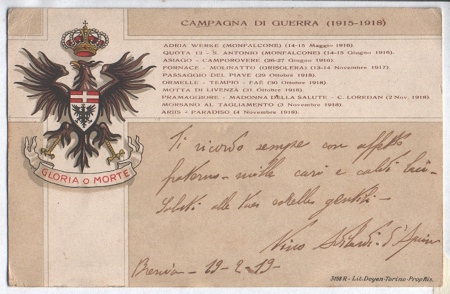 CAMPAGNA DI GUERRA (1915-1918)
ADRIA WERKE (MONFALCONE) (14-15 Maggio 1916).
QUOTA 12 - S. ANTONIO (MONFALCONE) (14-15 Giugno 1916).
ASIAGO - CAMPOROVERE (26-27 Giugno 1916).
FORNACE - MOLINATTO (GRISOLERA) (13-14 Novembre 1917).
PASSAGGIO DEL PIAVE (29 Ottobre 1918).
ORMELLE - TEMPIO - FAÈ (30 Ottobre 1918).
MOTTA DI LIVENZA (31 Ottobre 1918).
PRAMAGGIORE - MADONNA DELLA SALUTE - C. LOREDAN (2 Nov. 1918).
MORSANO AL TAGLIAMENTO (3 Novembre 1918).
ARIIS - PARADISO (4 Novembre 1918).
GLORIA O MORTE
Ti ricordo sempre con affetto
fraterno - mille cari e caldi baci -
Saluti alle tue sorelle gentili -
Nino
19-2-19-
Lit. Doyen-Torino-Prop. Ris.